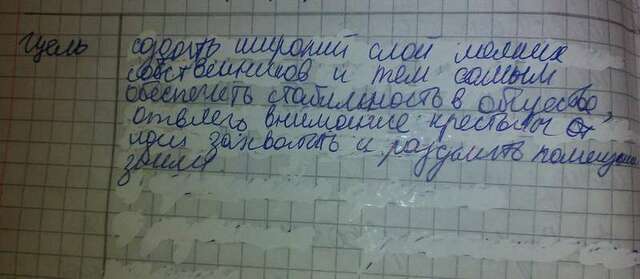 Цель создать широкий слой мелких
собственников и тем самым
обеспечить стабильность в обществе,
отвлечь внимание крестьян от
идеи захватить и разделить помещичьи
земли